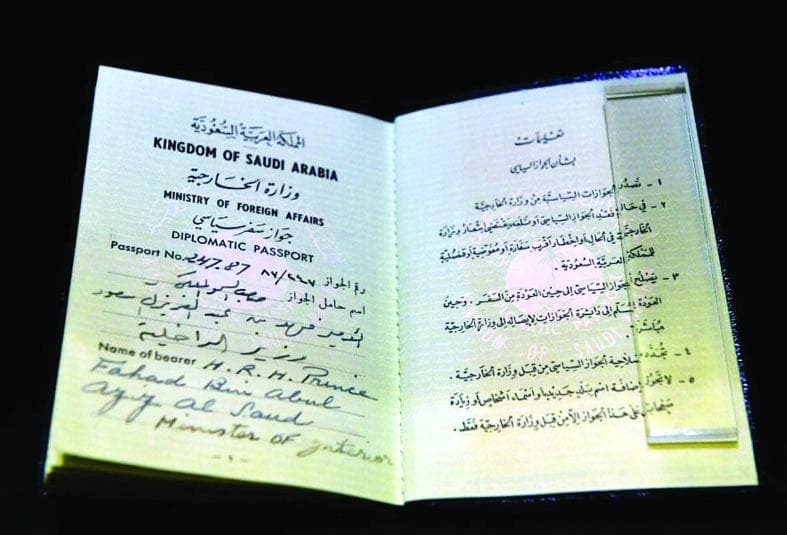 المملكة العربية السعودية
KINGDOM OF SAUDI ARABIA
وزارة الخارجية
MINISTRY OF FOREIGN AFFAIRS
جواز سفر سياسي
DIPLOMATIC PASSPORT
Passport No. رقم الجواز
اسم حامل الجواز صاحب السمو الملكي
الأمير فهد بن عبد العزيز آل سعود
وزير الداخلية
Name of bearer H. R. H. Prince
Fahad Bin Abdul
Azyz Al Saud
Minister OF interior
- ١ -
تعليمات
بشأن الجواز السياسي
١ - تصدر الجوازات السياسية من وزارة الخارجية
٢ - في حالة فقد الجواز السياسي أو تلفه يقتضي إشعار وزارة
الخارجية في الحال أو إخطار أقرب سفارة أو مفوضية أو قنصلية
للمملكة العربية السعودية .
٣ - يصلح الجواز السياسي إلى حين العودة من السفر . وحين
العودة يسلم إلى دائرة الجوازات لإيصاله إلى وزارة الخارجية
مباشرة .
٤ - تجدد صلاحية الجواز السياسي من قبل وزارة الخارجية .
٥ - لا تجوز إضافة اسم بلد جديد أو أسماء أشخاص أو زيادة
على هذا الجواز إلا من قبل وزارة الخارجية فقط .